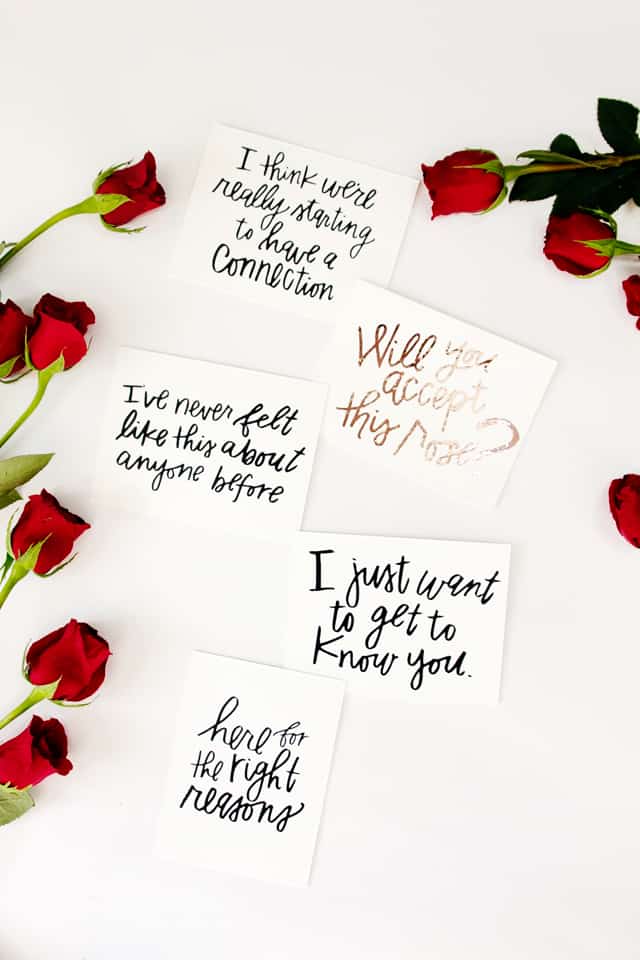 I think we're
really starting
to have a
Connection
Will you
accept
this rose?
I've never felt
like this about
anyone before
I just want
to get to
know you.
here for
the right
reasons